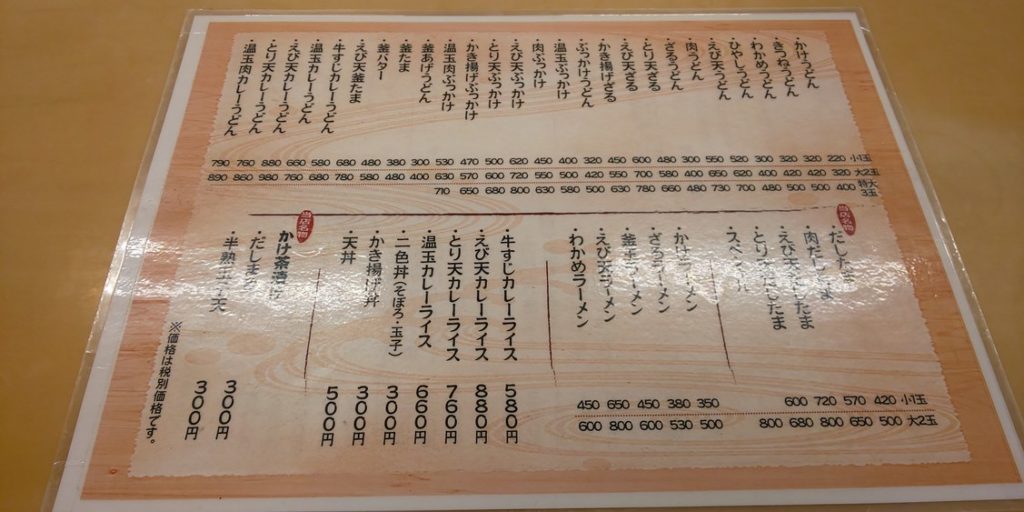 ・かけうどん
・きつねうどん
・わかめうどん
・ひやしうどん
・えび天うどん
・肉うどん
・ざるうどん
・とり天ざる
・えび天ざる
・かき揚げざる
・ぶっかけうどん
・温玉ぶっかけ
・肉ぶっかけ
・えび天ぶっかけ
・とり天ぶっかけ
・かき揚げぶっかけ
・温玉肉ぶっかけ
・釜あげうどん
・釜たま
・釜バター
・えび天釜たま
・牛すじカレーうどん
・温玉カレーうどん
・えび天カレーうどん
・とり天カレーうどん
・温玉肉カレーうどん
790 760 880 660 580 680 480 380 300 530 470 500 620 450 400 320 450 600 480 300 550 520 300 320 320 220 小1玉
890 860 980 760 680 780 580 480 400 630 570 600 720 550 500 420 550 700 580 400 650 620 400 420 420 320 大2玉
710 650 680 800 630 580 500 630 780 660 480 730 700 480 500 500 400 特大3玉
当店名物
・だしたま
・肉だしたま
・えび天だしたま
・とり天だしたま
・スペシャル
600 720 570 420 小1玉
800 680 800 650 500 大2玉
・かけラーメン
・ざるラーメン
・釜玉ラーメン
・えび天ラーメン
・わかめラーメン
450 650 450 380 350
600 800 600 530 500
・牛すじカレーライス 580円
・えび天カレーライス 880円
・とり天カレーライス 760円
・温玉カレーライス 660円
・二色丼(そぼろ・玉子) 300円
・かき揚げ丼 300円
・天丼 500円
当店名物
かけ茶漬け
・だしまき 300円
・半熟玉子天 300円
※価格は税別価格です。